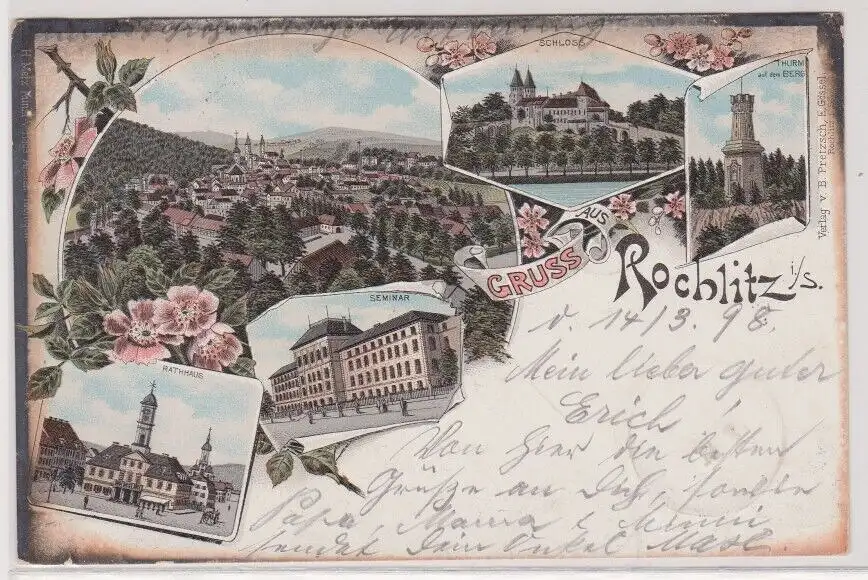 SCHLOSS
THURM
auf dem BERG
Verlag v. B. Pretzsch, E. Gössel
GRUSS AUS
Rochlitz i/S.
SEMINAR
RATHHAUS
d. 14/3. 98.
Mein lieber guter
Erich!
Von hier die besten
Grüße an Dich, sowie
Papa, Mama &
sendet Dein Onkel